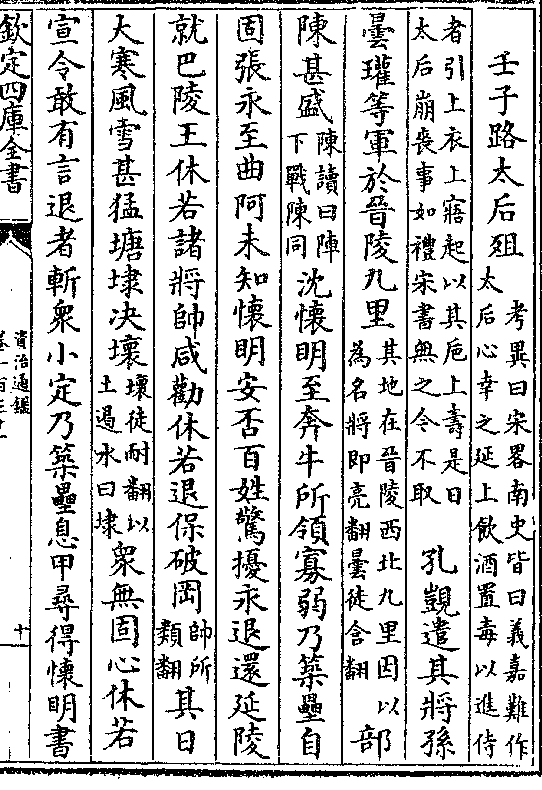 壬子路太后殂太后心幸之延上飲酒置毒以進侍
考異曰宋畧南史皆曰義嘉難作
者引上衣上寤起以其巵上壽是日
太后崩喪事如禮宋書無之令不取
孔覬遣其將孫
曇瓘等軍於晉陵九里其地在晉陵西北九里因以為名將即亮翻曇徒含翻部
陳甚盛陳讀曰陣下戰陳同沈懷明至奔牛所領寡弱乃築壘自
固張永至曲阿未知懷明安否百姓驚擾永退還延陵
就巴陵王休若諸將帥咸勸休若退保破岡帥所類翻其日
大寒風雪甚猛塘埭决壞壞徒耐翻以土遏水曰埭衆無固心休若
宣令敢有言退者斬衆小定乃築壘息甲尋得懷明書
欽定四庫全書
資治通鑑
十